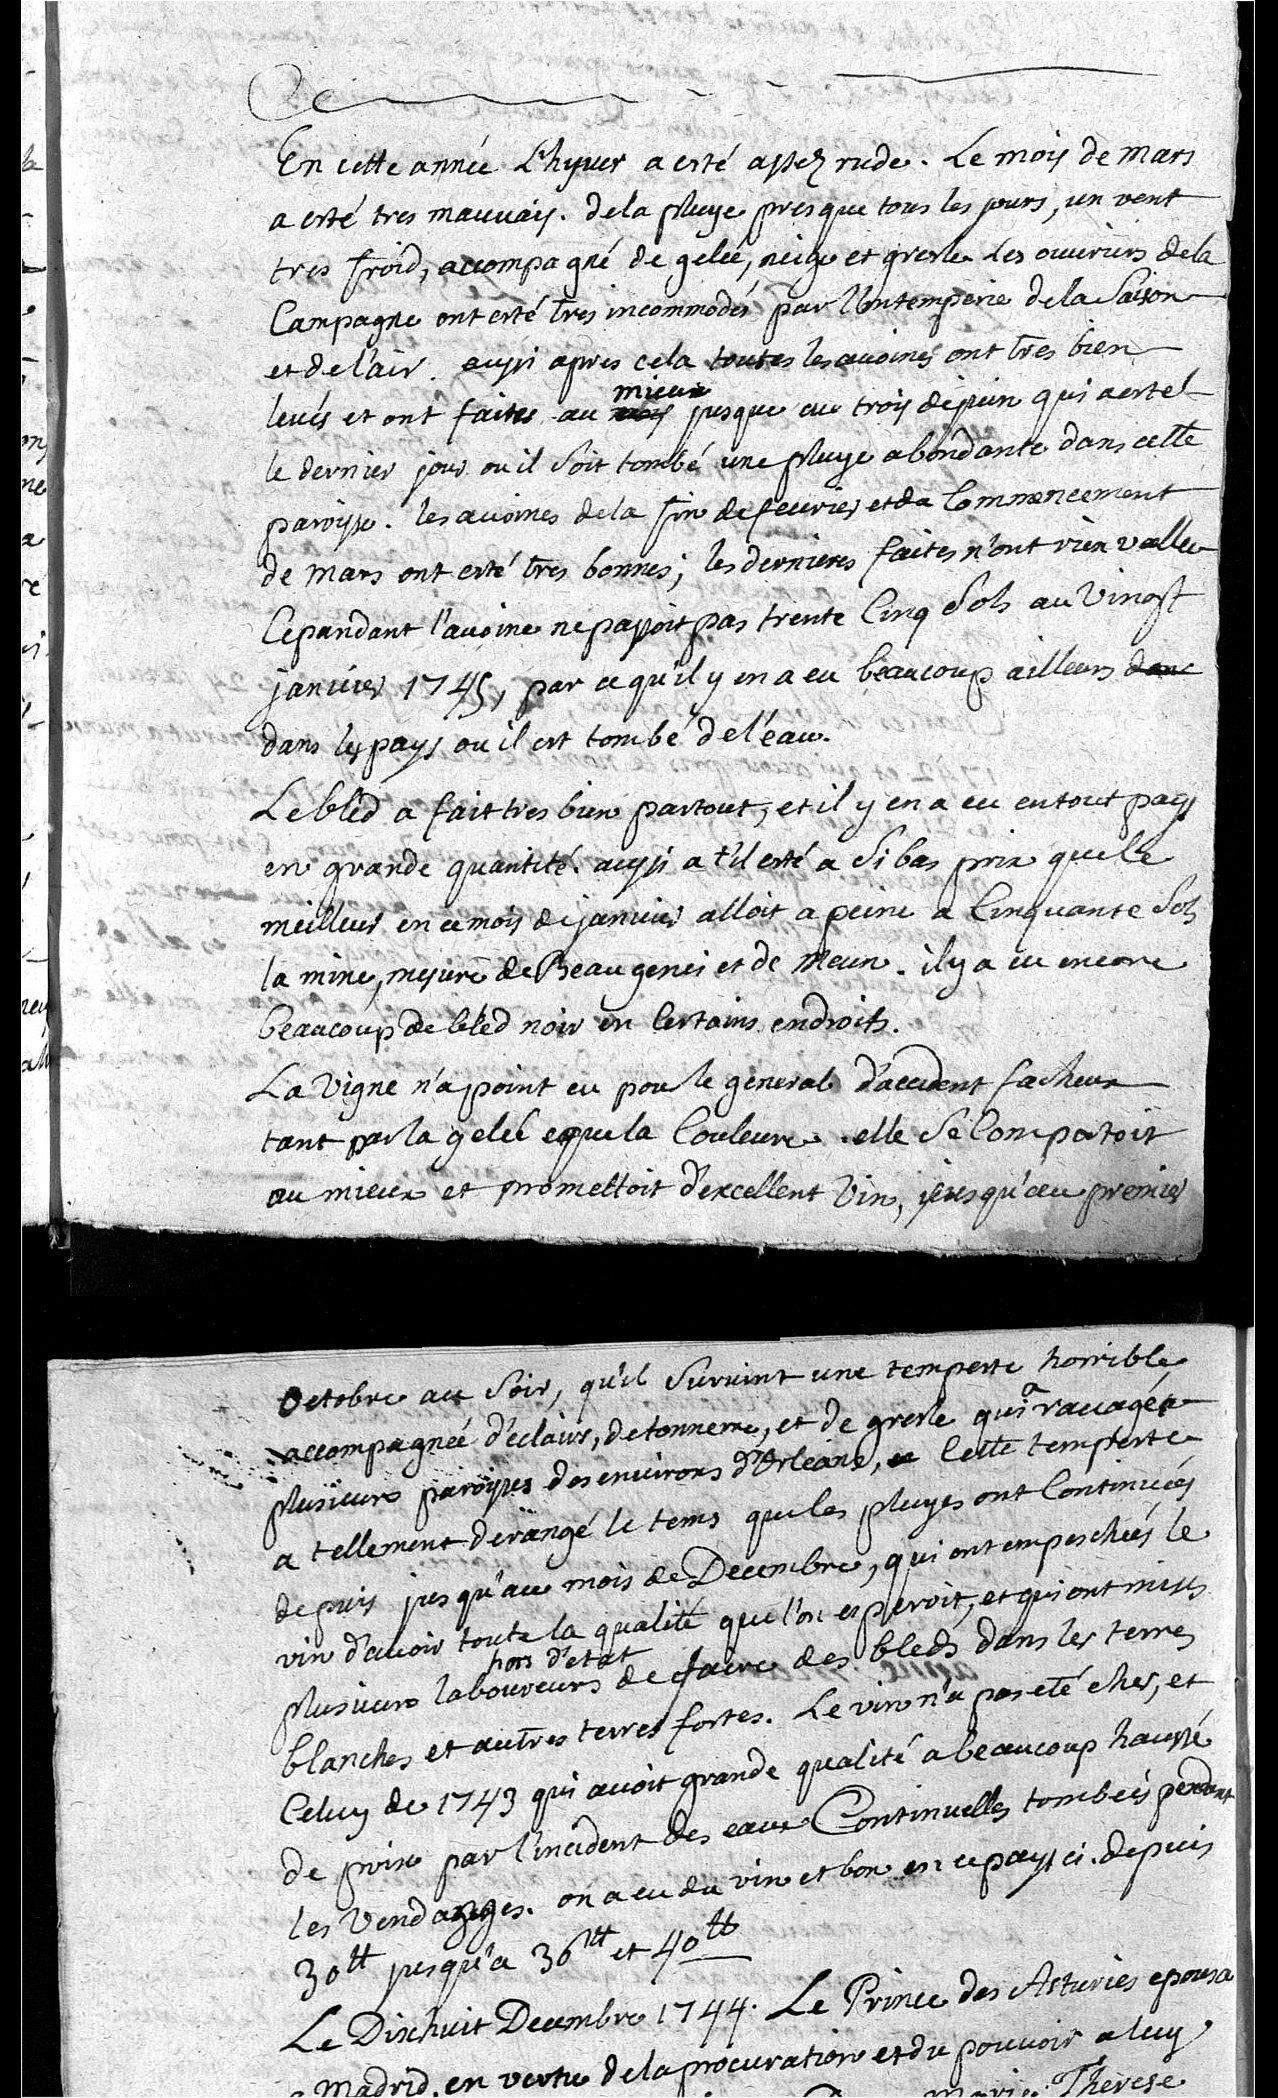 En cette année L'hyver a esté assez rude. Le mois de mars
a esté tres mauvais. de la pluye presque tous les jours, un vent
tres froid, accompagné de gelée, neige et gresle Les ouvriers de la
Campagne ont esté tres incommodés par l'intemperie de la Saison
et de l'air. aussi apres cela toutes les avoines ont tres bien
levés et ont faites au mieux jusque au trois de juin qui a esté
le dernier jour ou il soit tombé une pluye abondante dans cette
paroisse. les avoines de la fin de fevrier et du Commencement
de mars ont esté tres bonnes; les dernieres faites n'ont rien vallu
Cepandant l'avoine ne passoit pas trente Cinq Sols au Vingt
janvier 1745, par ce qu'il y en a eu beaucoup ailleurs danc
dans les pays ou il est tombé de l'éau.
Le bled a fait tres bien partout, et il y en a eu en tout pays
en grande quantité. aussi a t'il esté a Si bas prix que le
meilleur en ce mois de janvier alloit a peine a Cinquante Sols
la mine, mesure de Beaugenci et de Meun. il y a eu encore
beaucoup de bled noir en Certains endroits.
La Vigne n'a point eu pour le general d'accident facheux
tant par la gelée que la Couleure. elle Se Comportoit
au mieux et promettoit d'excellent Vin, jusqu'au premier
Octobre au Soir, qu'il Survint une tempeste horrible,
accompagnée d'éclairs, de tonnerre, et de gresle qui a ravagée
plusieurs paroisses des environs d'Orleans, Cette tempeste
a tellement derangé le tems que les pluyes ont Continuées
depuis jusqu'au mois de Decembre, qui ont empeschées le
vin d'avoir toute la qualité que l'on esperoit, et qui ont mises
plusieurs laboureurs hors d'etat de faire des bleds dans les terres
blanches et autres terres fortes. Le vin n'a pas eté cher, et
Celuy de 1743 qui avoit grande qualité a beaucoup haussé
de prix par l'incident des eaux Continuelles tombées pendant
les Vendanges. on a eu du vin et bon en ce pays ci. depuis
30tt jusqu'a 36tt et 40tt
Le Dixhuit Decembre 1744. Le Prince des Asturies epousa
a Madrid, en vertu de la procuration et du pouvoir a luy
Marie Therese